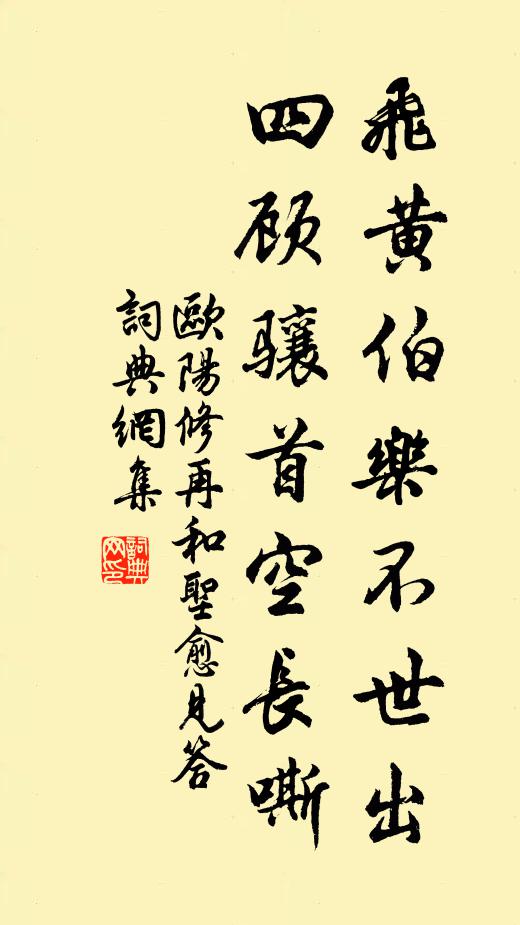 飛黄伯樂不世出
四顾骧首空長嘶
歐陽修再和聖愈見答
詞典網集
詞典網印